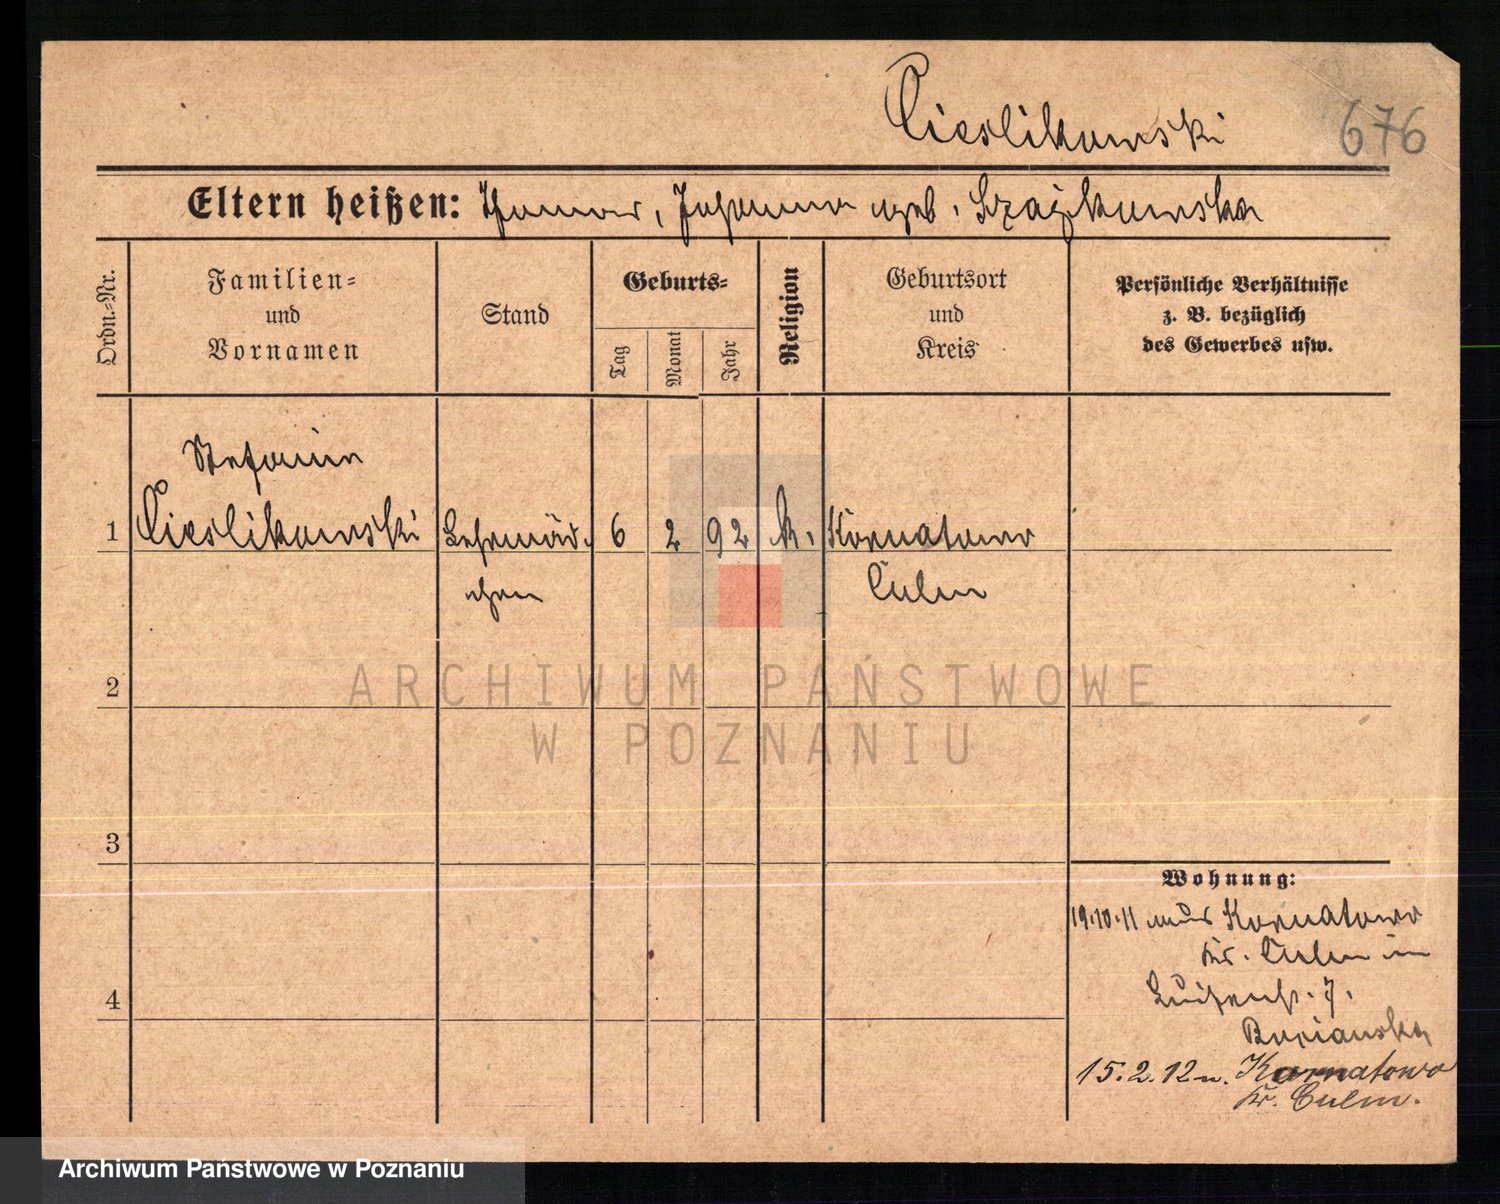 Cieslikowski
676
Eltern heißen: Thomas, Johanna geb.
Ordn.-Nr.
Familien-
und
Vornamen
Stand
Geburts-
Tag
Monat
Jahr
Religion
Geburtsort
und
Kreis
Persönliche Verhältnisse
z. B. bezüglich
des Gewerbes usw.
Stefanie
1 Cieslikowski Lehrmäd- 6 2 92 k. Kornatowo
chen Culm
2
ARCHIWUM PAŃSTWOWE
W POZNANIU
3
Wohnung:
19.10.11 aus Kornatowo
Kr. Culm in
Luisenst. 7.
4
15.2.12 n. Kornatowo
Kr. Culm.
Archiwum Państwowe w Poznaniu